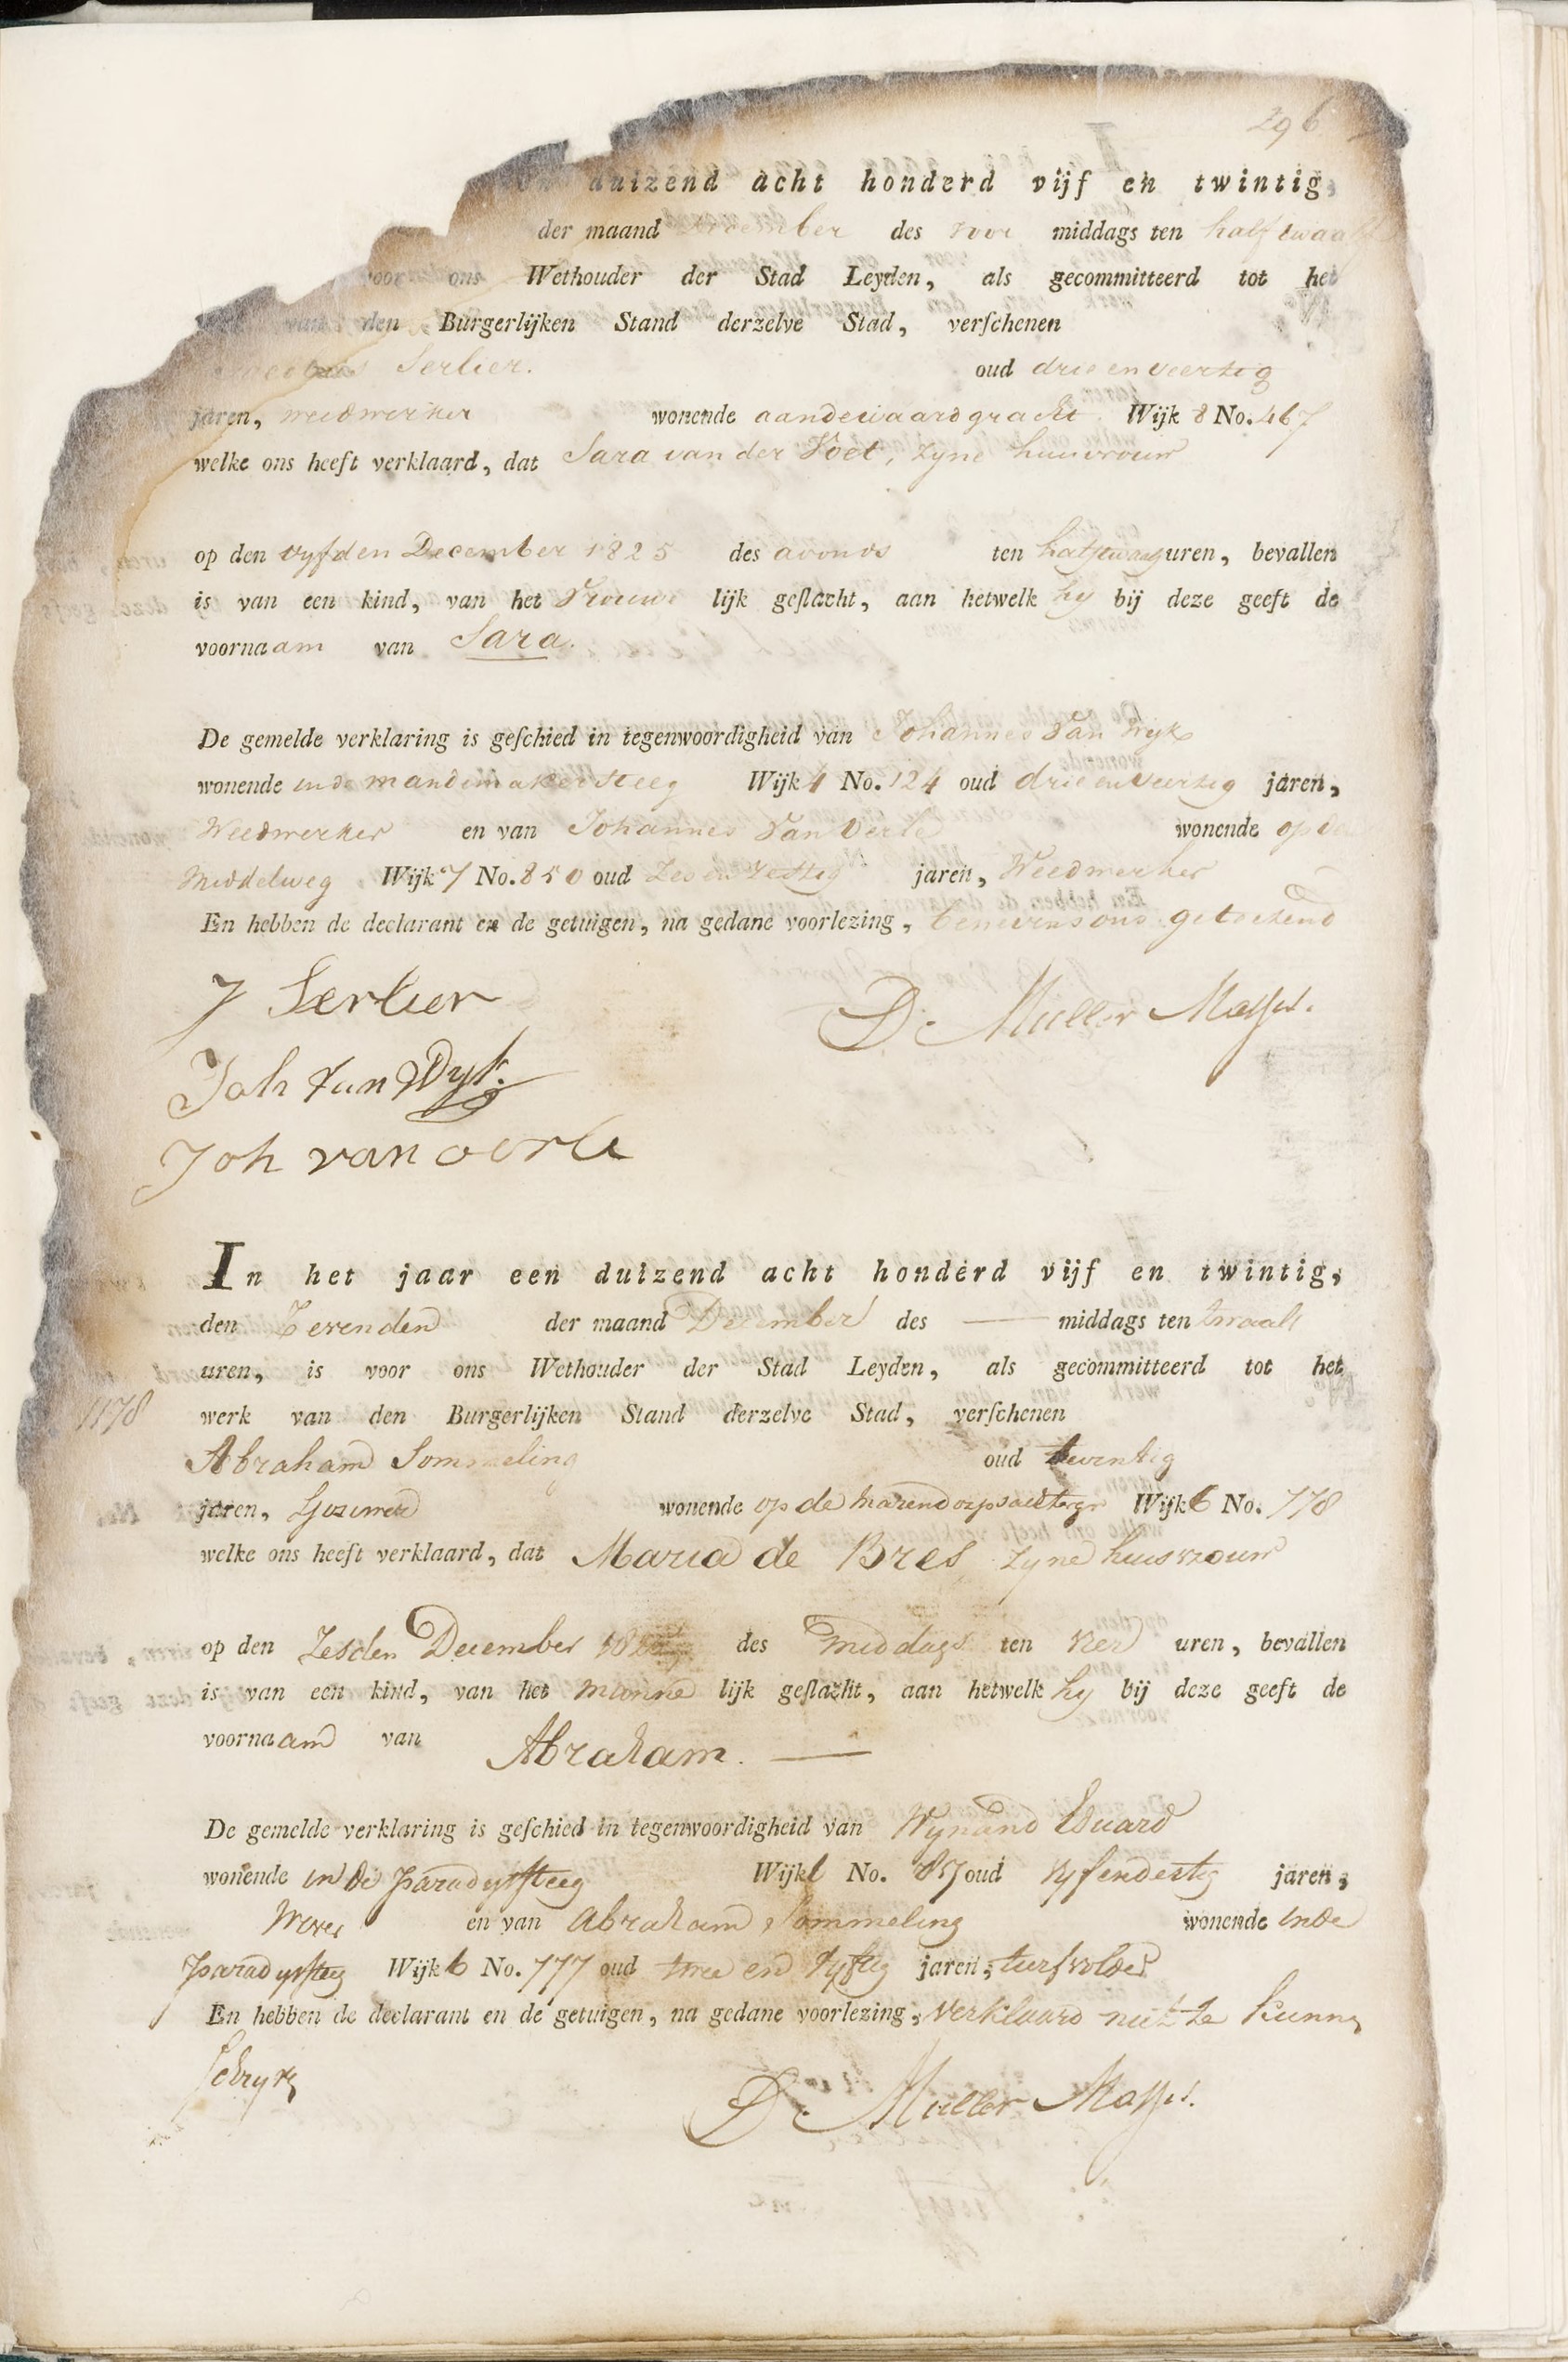 296
duizend acht honderd vijf en twintig,
der maand December des voor middags ten half twaalf
voor ons Wethouder der Stad Leyden, als gecommitteerd tot het
van den Burgerlijken Stand derzelve Stad, verschenen
Serlier. oud drie en veertig
jaren, weedwerker wonende aan de uiaardgracht Wijk 8 No. 467
welke ons heeft verklaard, dat Sara van der Voet, zyne huisvrouw
op den vyfden December 1825 des avonds ten half twaalf uren, bevallen
is van een kind, van het Vrouwe lijk geslacht, aan hetwelk hy bij deze geeft de
voornaam van Sara.
De gemelde verklaring is geschied in tegenwoordigheid van Johannes van Wyk
wonende in de mandemakersteeg Wijk 4 No. 124 oud drie en veertig jaren,
Weedwerker en van Johannes van Oerle wonende op de
Middelweg Wijk 7 No. 850 oud Zes en Zestig jaren, Weedwerker
En hebben de declarant en de getuigen, na gedane voorlezing, benevens ons getekend
J Serlier
D. Muller Massis.
Joh van Wyk
Joh van oerle
In het jaar een duizend acht honderd vijf en twintig,
den Zevenden der maand December des — middags ten twaalf
uren, is voor ons Wethouder der Stad Leyden, als gecommitteerd tot het
1178
werk van den Burgerlijken Stand derzelve Stad, verschenen
Abraham Sommeling oud twentig
jaren, Sjouwer wonende op de marendorpsachtergr Wijk 6 No. 778
welke ons heeft verklaard, dat Maria de Bres, zyne huisvrouw
op den Zesden December des middags ten vier uren, bevallen
is van een kind, van het manne lijk geslacht, aan hetwelk hy bij deze geeft de
voornaam van Abraham. —
De gemelde verklaring is geschied in tegenwoordigheid van Wynand Eduard
wonende in de Paradyssteeg Wijk No. oud vyfendertig jaren,
Wever en van Abraham Sommeling wonende in de
Paradyssteeg Wijk 6 No. 777 oud twee en vyftig jaren, turfvolder
En hebben de declarant en de getuigen, na gedane voorlezing, verklaard niet te kunnen
schryven
D. Muller Massis.